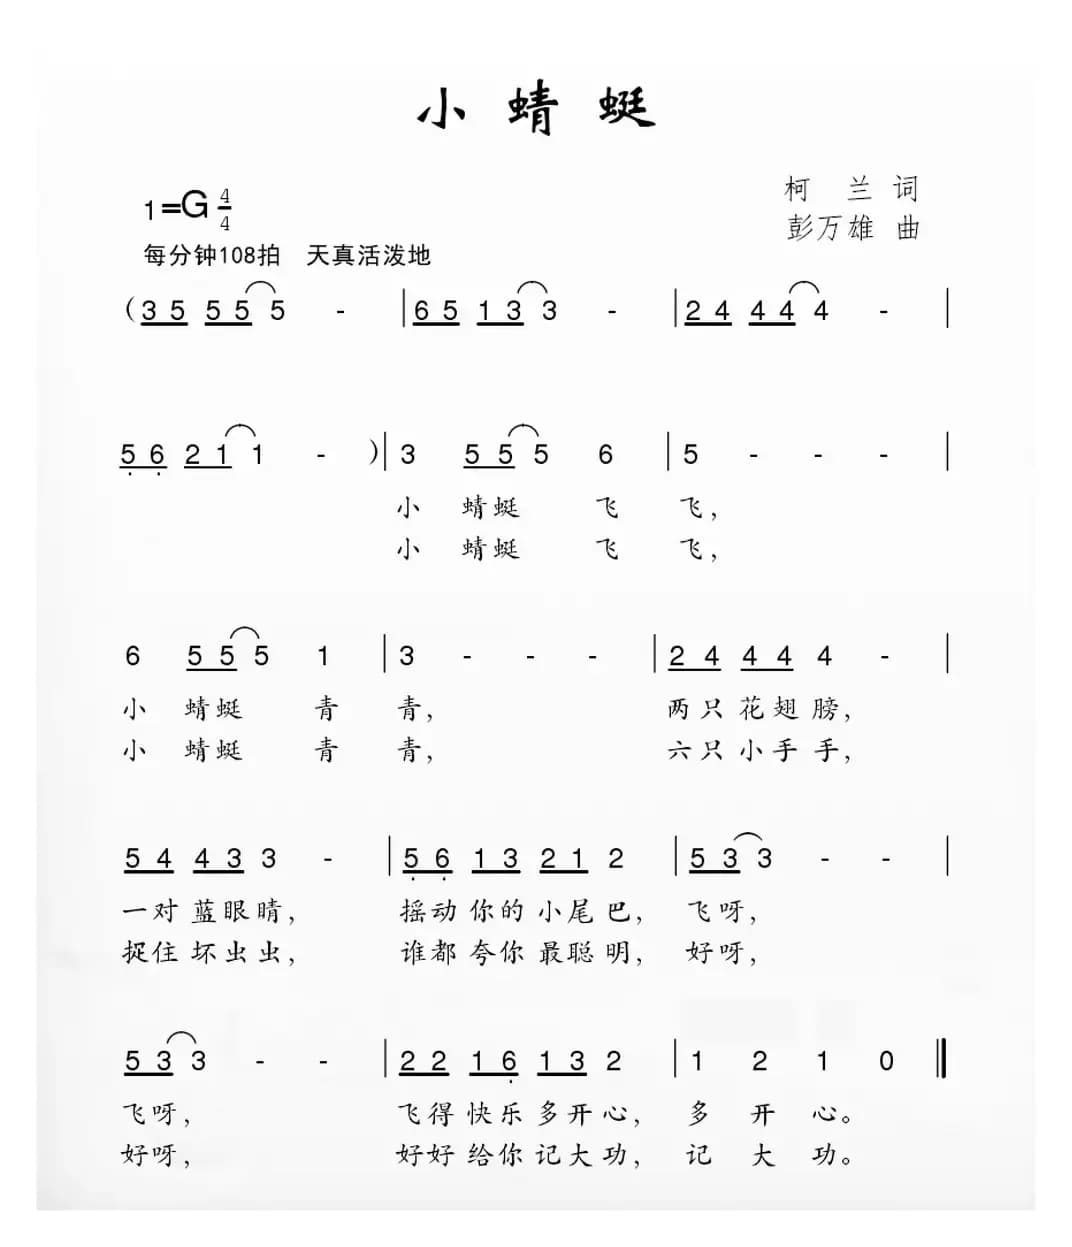 小蜻蜓
1=G 4/4
柯兰词
彭万雄 曲
每分钟108拍 天真活泼地
(3 5 5 5 5 - | 6 5 1 3 3 - | 2 4 4 4 4 - |
5 6 2 1 1 - ) | 3 5 5 5 6 | 5 - - - |
小 蜻蜓 飞 飞,
小 蜻蜓 飞 飞,
6 5 5 5 1 | 3 - - - | 2 4 4 4 4 - |
小 蜻蜓 青 青, 两只花翅膀,
小 蜻蜓 青 青, 六只小手手,
5 4 4 3 3 - | 5 6 1 3 2 1 2 | 5 3 3 - - |
一对蓝眼睛, 摇动你的小尾巴, 飞呀,
捉住坏虫虫, 谁都夸你最聪明, 好呀,
5 3 3 - - | 2 2 1 6 1 3 2 | 1 2 1 0 ‖
飞呀, 飞得快乐多开心, 多 开 心。
好呀, 好好给你记大功, 记 大 功。